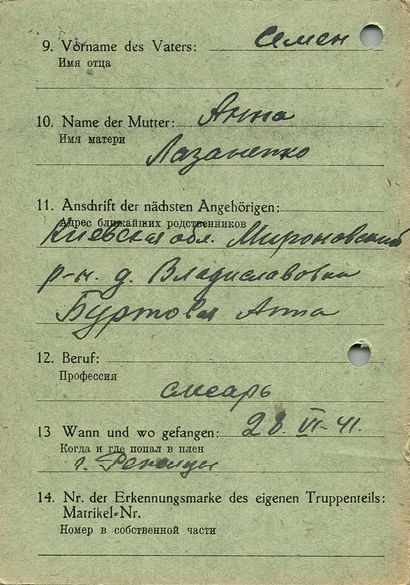 9. Vorname des Vaters: Семен
Имя отца
10. Name der Mutter: Анна
Имя матери
Лазаненко
11. Anschrift der nächsten Angehörigen:
Адрес ближайших родственников
Киевская обл. Мироновский
р-н. д. Владиславовка
Буртовая Анна
12. Beruf:
Профессия
слесарь
13 Wann und wo gefangen: 28. VI-41.
Когда и где попал в плен
г.
14. Nr. der Erkennungsmarke des eigenen Truppenteils:
Matrikel-Nr.
Номер в собственной части